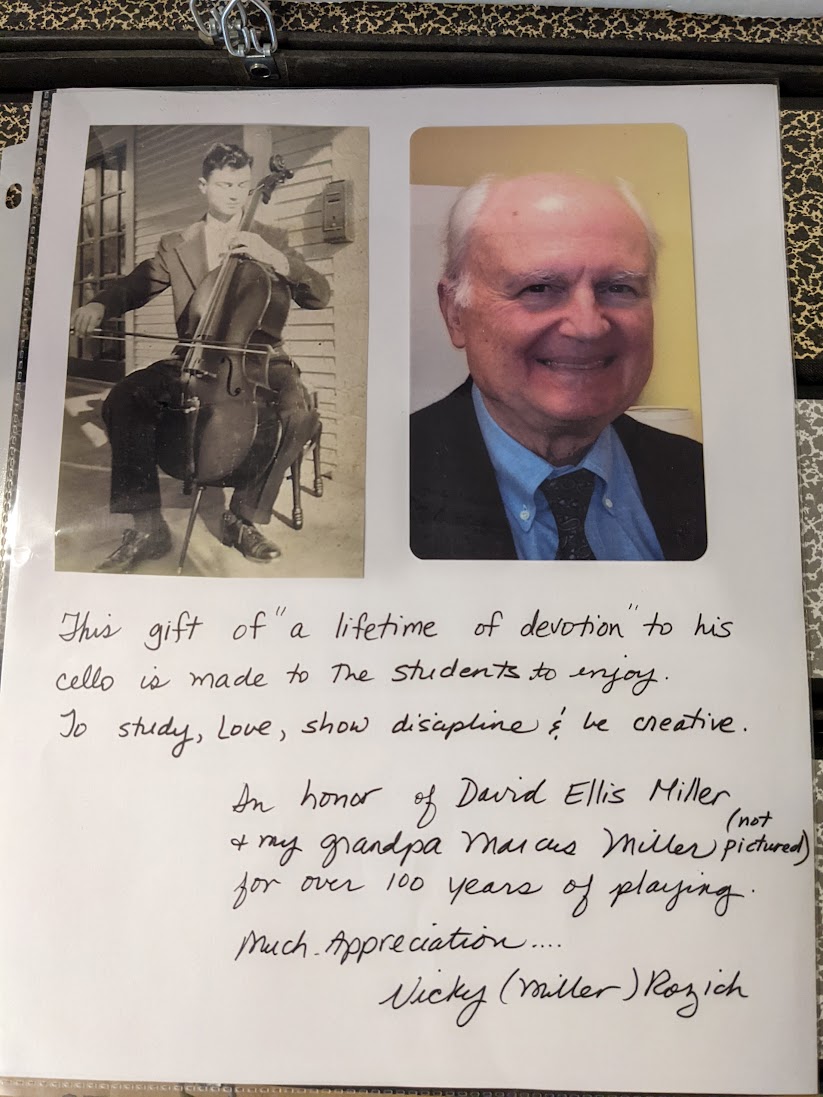 This gift of "a lifetime of devotion" to his
cello is made to The students to enjoy.
To study, Love, show discipline & be creative.
In honor of David Ellis Miller
& my grandpa Marcus Miller (not pictured)
for over 100 years of playing.
Much Appreciation....
Vicky (Miller) Rozich